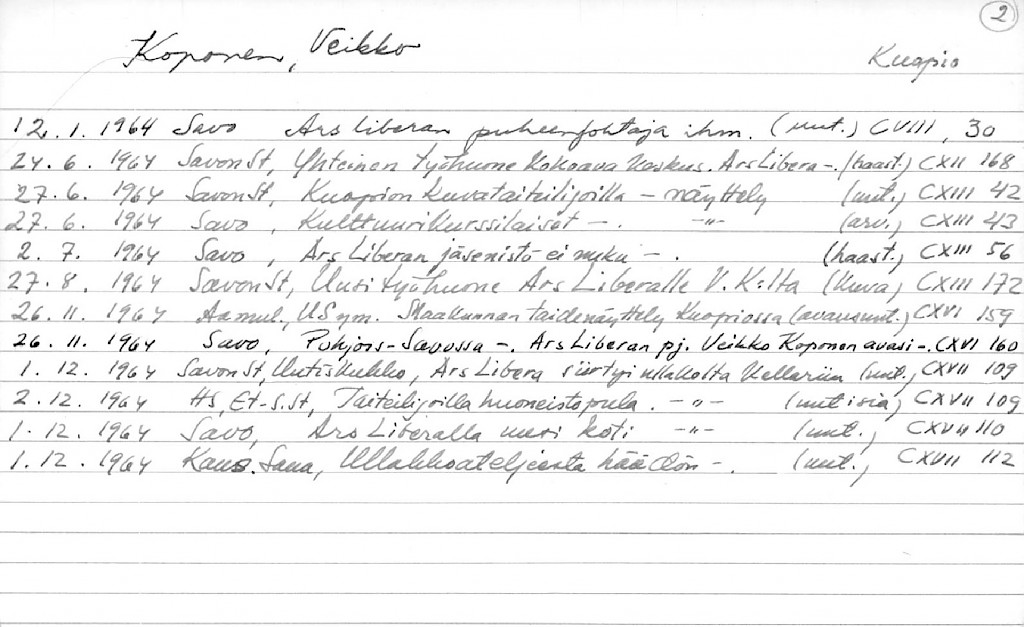 2
Koponen, Veikko
Kuopio
12.1. 1964 Savo Ars Liberan puheenjohtaja ihm. (uut.) CVIII, 30
24.6. 1964 SavonSt, Yhteinen työhuone kokoava keskus. Ars Libera -. (haast.) CXII 168
27.6. 1964 SavonSt, Kuopion kuvataiteilijoilla - näyttely (uut.) CXIII 42
27.6. 1964 Savo, Kulttuurikurssilaiset -. -"- (arv.) CXIII 43
2.7. 1964 Savo, Ars Liberan jäsenistö ei -. (haast.) CXIII 56
27.8. 1964 SavonSt, Uusi työhuone Ars Liberalle V.K:lta (kuva) CXIII 172
26.11. 1964 Aamul., US ym. Maakunnan taidenäyttely Kuopiossa (avausuut.) CXVI 159
26.11. 1964 Savo, Pohjois-Savossa -. Ars Liberan pj. Veikko Koponen avasi -. CXVI 160
1.12. 1964 SavonSt, Uutiskukko, Ars Libera siirtyi ullakolta kellariin (uut.) CXVII 109
2.12. 1964 HS, Et-S.St, Taiteilijoilla huoneistopula. -"- (uutisia) CXVII 109
1.12. 1964 Savo, Ars Liberalla uusi koti -"- (uut.) CXVII 110
1.12. 1964 Kans. Sana, Ullakkoateljeesta häädön -. (uut.) CXVII 112